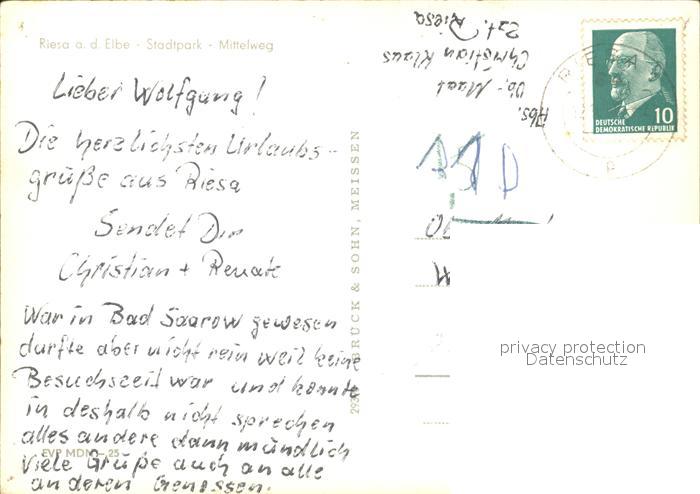 Riesa a. d. Elbe · Stadtpark · Mittelweg
Lieber Wolfgang!
Die herzlichsten Urlaubs-
grüße aus Riesa
Sendet Dir
Christian + Renate
War in Bad Saarow gewesen
durfte aber nicht rein weil keine
Besuchszeit war und konnte
in deshalb nicht sprechen
alles andere dann mündlich
Viele Grüße auch an alle
anderen Genossen.
EVP MDN -,25
BRÜCK & SOHN, MEISSEN
Abs.
Maat
Christian Klaus
Zzt. Riesa
DEUTSCHE
DEMOKRATISCHE REPUBLIK
10
privacy protection
Datenschutz